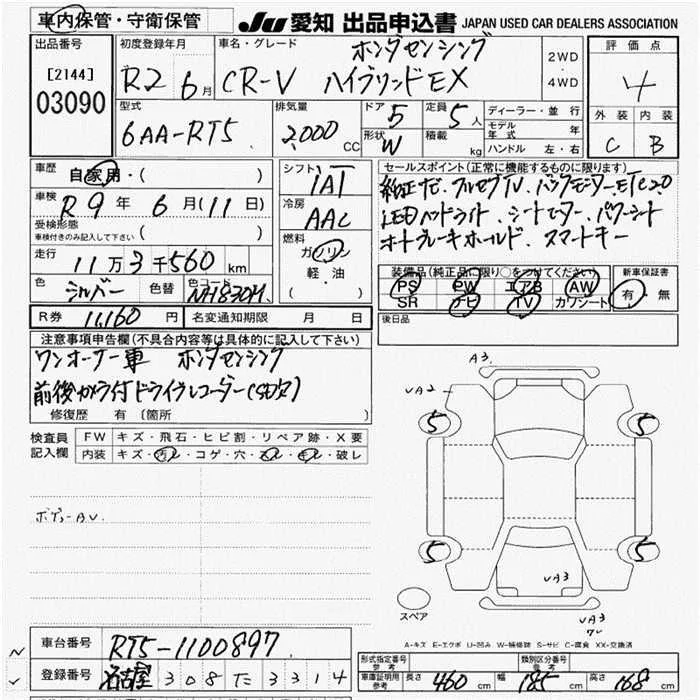 車内保管・守衛保管
JU 愛知 出品申込書 JAPAN USED CAR DEALERS ASSOCIATION
出品番号
[2144]
03090
初度登録年月
R2 6月
車名・グレード
ホンダセンシング
CR-V ハイブリッドEX
2WD
・
4WD
評価点
4
外装 内装
C B
型式
6AA-RT5
排気量
2,000 CC
ドア 5
定員 5人
形状 W
積載 kg
ディーラー・並行
モデル年式 年
ハンドル 左・右
車歴 自家用・( )
車検 R9年 6月(11日)
受検形態
車検付きのみ記入して下さい ( )
走行 11万3千560km
色 シルバー 色替 色コード NH830M
シフト IAT
冷房 AAC
燃料 ガソリン
軽・油
( )
セールスポイント(正常に機能するものに限ります)
純正ナビ.フルセグTV.バックモニター.ETC2.0
LEDヘッドライト.シートヒーター.パワーシート
オートブレーキホールド.スマートキー
装備品(純正品に限り○をつけてください)
PS PW エアB AW
SR ナビ TV カワシート
新車保証書
有・無
R券 11,160円 名変通知期限 月 日
後日品
注意事項申告欄(不具合内容等は具体的に記入して下さい)
ワンオーナー車 ホンダセンシング
前後カメラ付ドライブレコーダー(SD欠)
修復歴 有 〔箇所 〕
検査員
記入欄
FW キズ・飛石・ヒビ割・リペア跡・X要
内装 キズ・汚レ・コゲ・穴・スレ・キレ・破レ
ボディーAU.
A3.
UA2
5 5
5 5
UA3
スペア
UA3
A-キズ E-エクボ U-凹み W-補修跡 S-サビ C-腐食 XX-交換済
車台番号 RT5-1100897
登録番号 名古屋 308 た 3314
形式指定番号 参考
類別区分番号 参考
車庫証明用 参考 長さ 460cm 幅 185cm 高さ 168cm